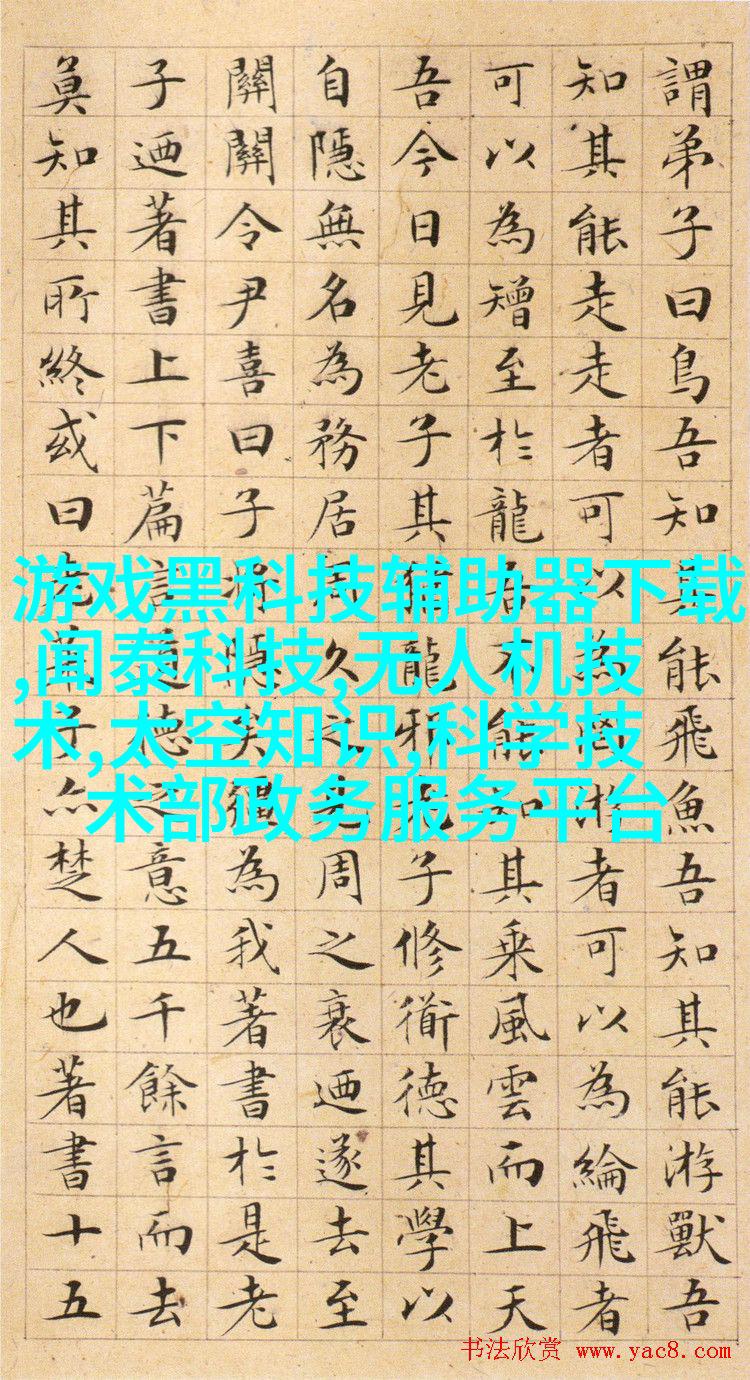 謂弟子曰鳥吾知其能飛魚吾知其能游獸吾
知其能走走者可以為罔游者可以為綸飛者
可以為矰至於龍吾不能知其乘風雲而上天
吾今日見老子其猶龍邪老子修衜德其學以
自隱無名為務居周久之見周之衰迺遂去至
關關令尹喜曰子將隱矣彊為我著書於是老
子迺著書上下篇言道德之意五千餘言而去
莫知其所終或曰老萊子亦楚人也著書十五
游戏黑科技辅助器下载
,闻泰科技,无人机技
术,太空知识,科学技
术部政务服务平台
书法欣赏 www.yac8.com